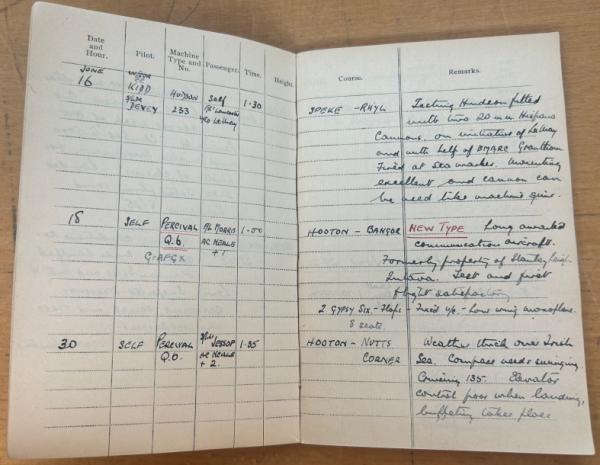 Date and Hour.
Pilot.
Machine Type and No.
Passenger.
Time.
Height.
Course.
Remarks.
JUNE
16
KIDD
DEVEY
HUDSON
233
Self
1.30
SPEKE - RHYL
Testing Hudson fitted
with two 20 m.m. Hispano
Cannons, on initiative of
and with help of BMARC Grantham
Fired at sea marker. Mounting
excellent and cannon can
be used like machine guns.
18
SELF
PERCIVAL
Q.6.
G-AFGX
MORRIS
AC NEALE
+ 1
1.00
HOOTON - BANGOR
NEW TYPE Long awaited
communication aircraft.
Formerly property of
Test and first
flight satisfactory
2 GYPSY SIX - Flaps - Fixed u/c - low wing monoplane.
8 seats.
30
SELF
PERCIVAL
Q.6.
JESSOP
AC NEALE
+ 2.
1.35
HOOTON - NUTTS
CORNER
Weather thick over Irish
Sea. Compass needs swinging
Cruising 135. Elevator
control poor when landing,
buffeting takes place